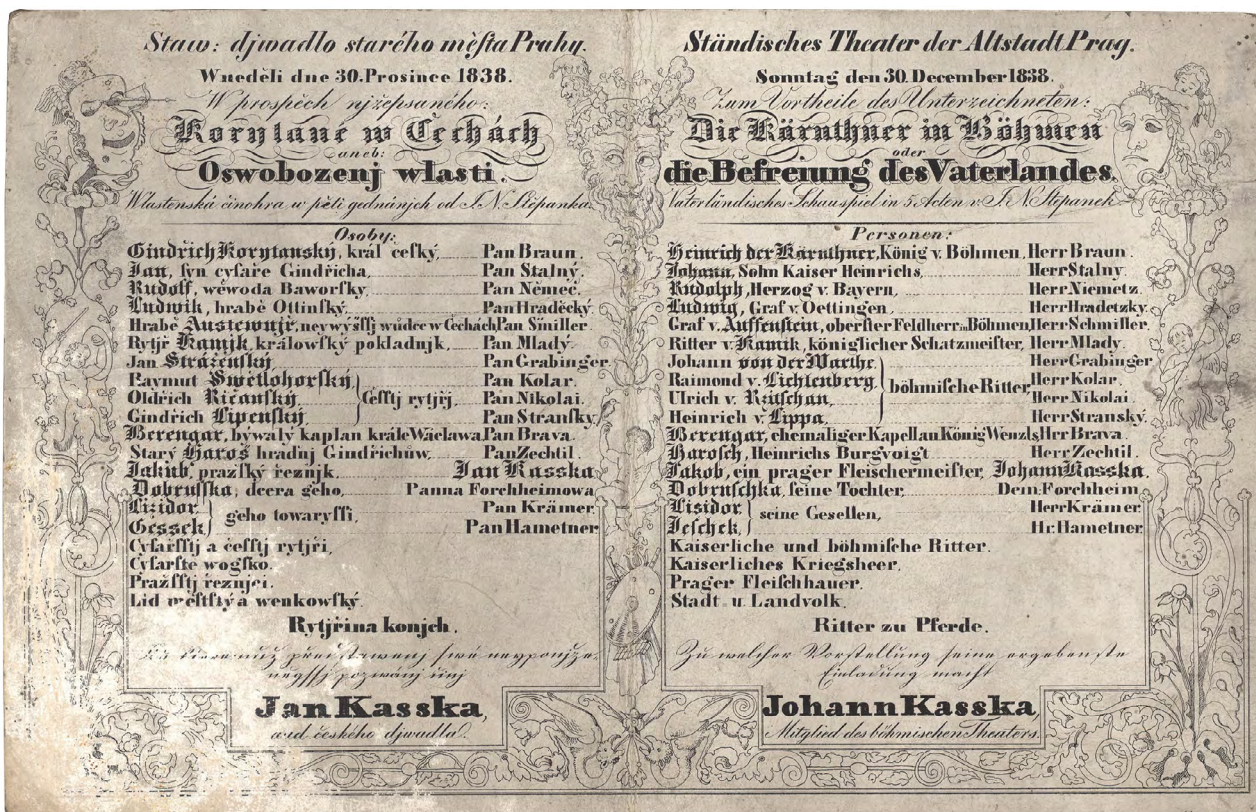 Staw: djwadlo starého města Prahy.
Wneděli dne 30. Prosince 1838.
W prospěch njžepsaného:
Korytané w Čechách
aneb:
Oswobozenj wlasti.
Wlastenská činohra w pěti gednánjch od J. N. Štěpánka.
Osoby:
Gindřich Korytanský, král český, Pan Braun.
Jan, syn cysaře Gindřicha, Pan Stalný.
Rudolf, wéwoda Baworský, Pan Němeč.
Ludwik, hrabě Ottinský, Pan Hraděcký.
Hrabě Austewnjř, neywýššj wůdce w Čechách, Pan Šmiller.
Rytjř Kamjk, králowský pokladnjk, Pan Mladý.
Jan Strážénský, Pan Grabinger
Raymut Swětlohorský, Pan Kolar.
Oldřich Řičanský, češstj rytjřj, Pan Nikolai.
Gindřich Lipenský, Pan Stranský
Berengar, býwalý kaplan krále Wáclawa, Pan Brava.
Starý Haroš hradnj Gindřichůw, Pan Zechtil.
Jakub, pražský řeznjk, Jan Kasska
Dobrusska, dcera geho, Panna Forchheimowa
Lizidor Pan Krämer.
geho towaryssi,
Gessek Pan Hametner
Cysařsstj a češstj rytjři,
Cysařste wogsko.
Pražsstj řeznjci.
Lid městský a wenkowský.
Rytjři na konjch.
představenj swé neyponjže-
negssj pozwánj činj
Jan Kasska,
aud českého djwadla.
Ständisches Theater der Altstadt Prag.
Sonntag den 30. December 1838.
Zum Vortheile des Unterzeichneten:
Die Kärnthner in Böhmen
oder
die Befreiung des Vaterlandes.
Vaterländisches Schauspiel in 5 Acten v. J. N. Stěpanek
Personen:
Heinrich der Kärnthner, König v. Böhmen, Herr Braun.
Johann, Sohn Kaiser Heinrichs, Herr Stalny.
Rudolph, Herzog v. Bayern, Herr Niemetz.
Ludwig, Graf v. Oettingen, Herr Hradetzky.
Graf v. Auffenstein, oberster Feldherr in Böhmen, Herr Schmiller.
Ritter v. Kamik, königlicher Schatzmeister, Herr Mlady.
Johann von der Warthe. Herr Grabinger
Raimond v. Lichtenberg, Herr Kolar.
böhmische Ritter,
Ulrich v. Rzitschan, Herr Nikolai.
Heinrich v. Lippa, Herr Stransky.
Berengar, ehemaliger Kapellan König Wenzls, Hrr Brava.
Harosch, Heinrichs Burgvoigt Herr Zechtil.
Jakob, ein prager Fleischermeister, Johann Kasska.
Dobruschka, seine Tochter, Dem: Forchheim.
Lisidor Herr Krämer.
seine Gesellen,
Jeschek, Hr. Hametner.
Kaiserliche und böhmische Ritter.
Kaiserliches Kriegsheer.
Prager Fleischhauer.
Stadt u. Landvolk.
Ritter zu Pferde.
Zu welcher Vorstellung seine ergebenste
Einladung macht
Johann Kasska,
Mitglied des böhmischen Theaters.